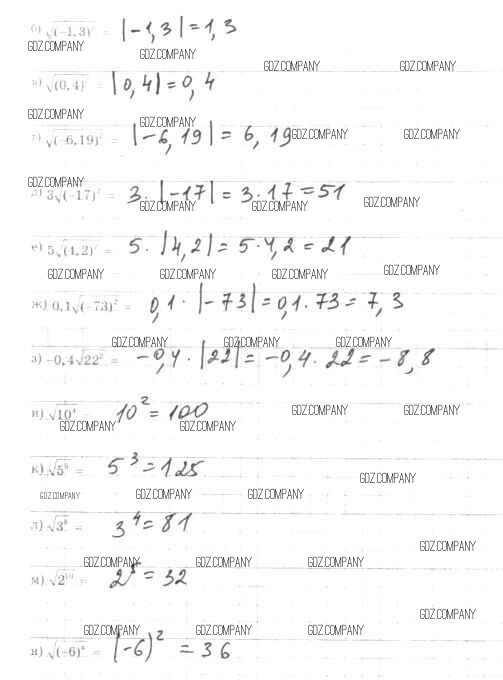 б) √(−1,3)² = |−1,3| = 1,3
GDZ.COMPANY GDZ.COMPANY
GDZ.COMPANY GDZ.COMPANY
в) √(0,4)² = |0,4| = 0,4
GDZ.COMPANY GDZ.COMPANY
г) √(−6,19)² = |−6,19| = 6,19 GDZ.COMPANY GDZ.COMPANY
GDZ.COMPANY
д) 3√(−17)² = 3 · |−17| = 3 · 17 = 51
GDZ.COMPANY GDZ.COMPANY GDZ.COMPANY
е) 5√(4,2)² = 5 · |4,2| = 5 · 4,2 = 21
GDZ.COMPANY GDZ.COMPANY GDZ.COMPANY GDZ.COMPANY
ж) 0,1√(−73)² = 0,1 · |−73| = 0,1 · 73 = 7,3
GDZ.COMPANY GDZ.COMPANY GDZ.COMPANY
з) −0,4√22² = −0,4 · |22| = −0,4 · 22 = −8,8
и) √10⁴ = 10² = 100 GDZ.COMPANY GDZ.COMPANY
GDZ.COMPANY GDZ.COMPANY
к) √5⁶ = 5³ = 125 GDZ.COMPANY
GDZ.COMPANY GDZ.COMPANY GDZ.COMPANY
л) √3⁸ = 3⁴ = 81
GDZ.COMPANY
GDZ.COMPANY GDZ.COMPANY GDZ.COMPANY
м) √2¹⁰ = 2⁵ = 32
GDZ.COMPANY
GDZ.COMPANY GDZ.COMPANY GDZ.COMPANY
н) √(−6)⁴ = (−6)² = 36